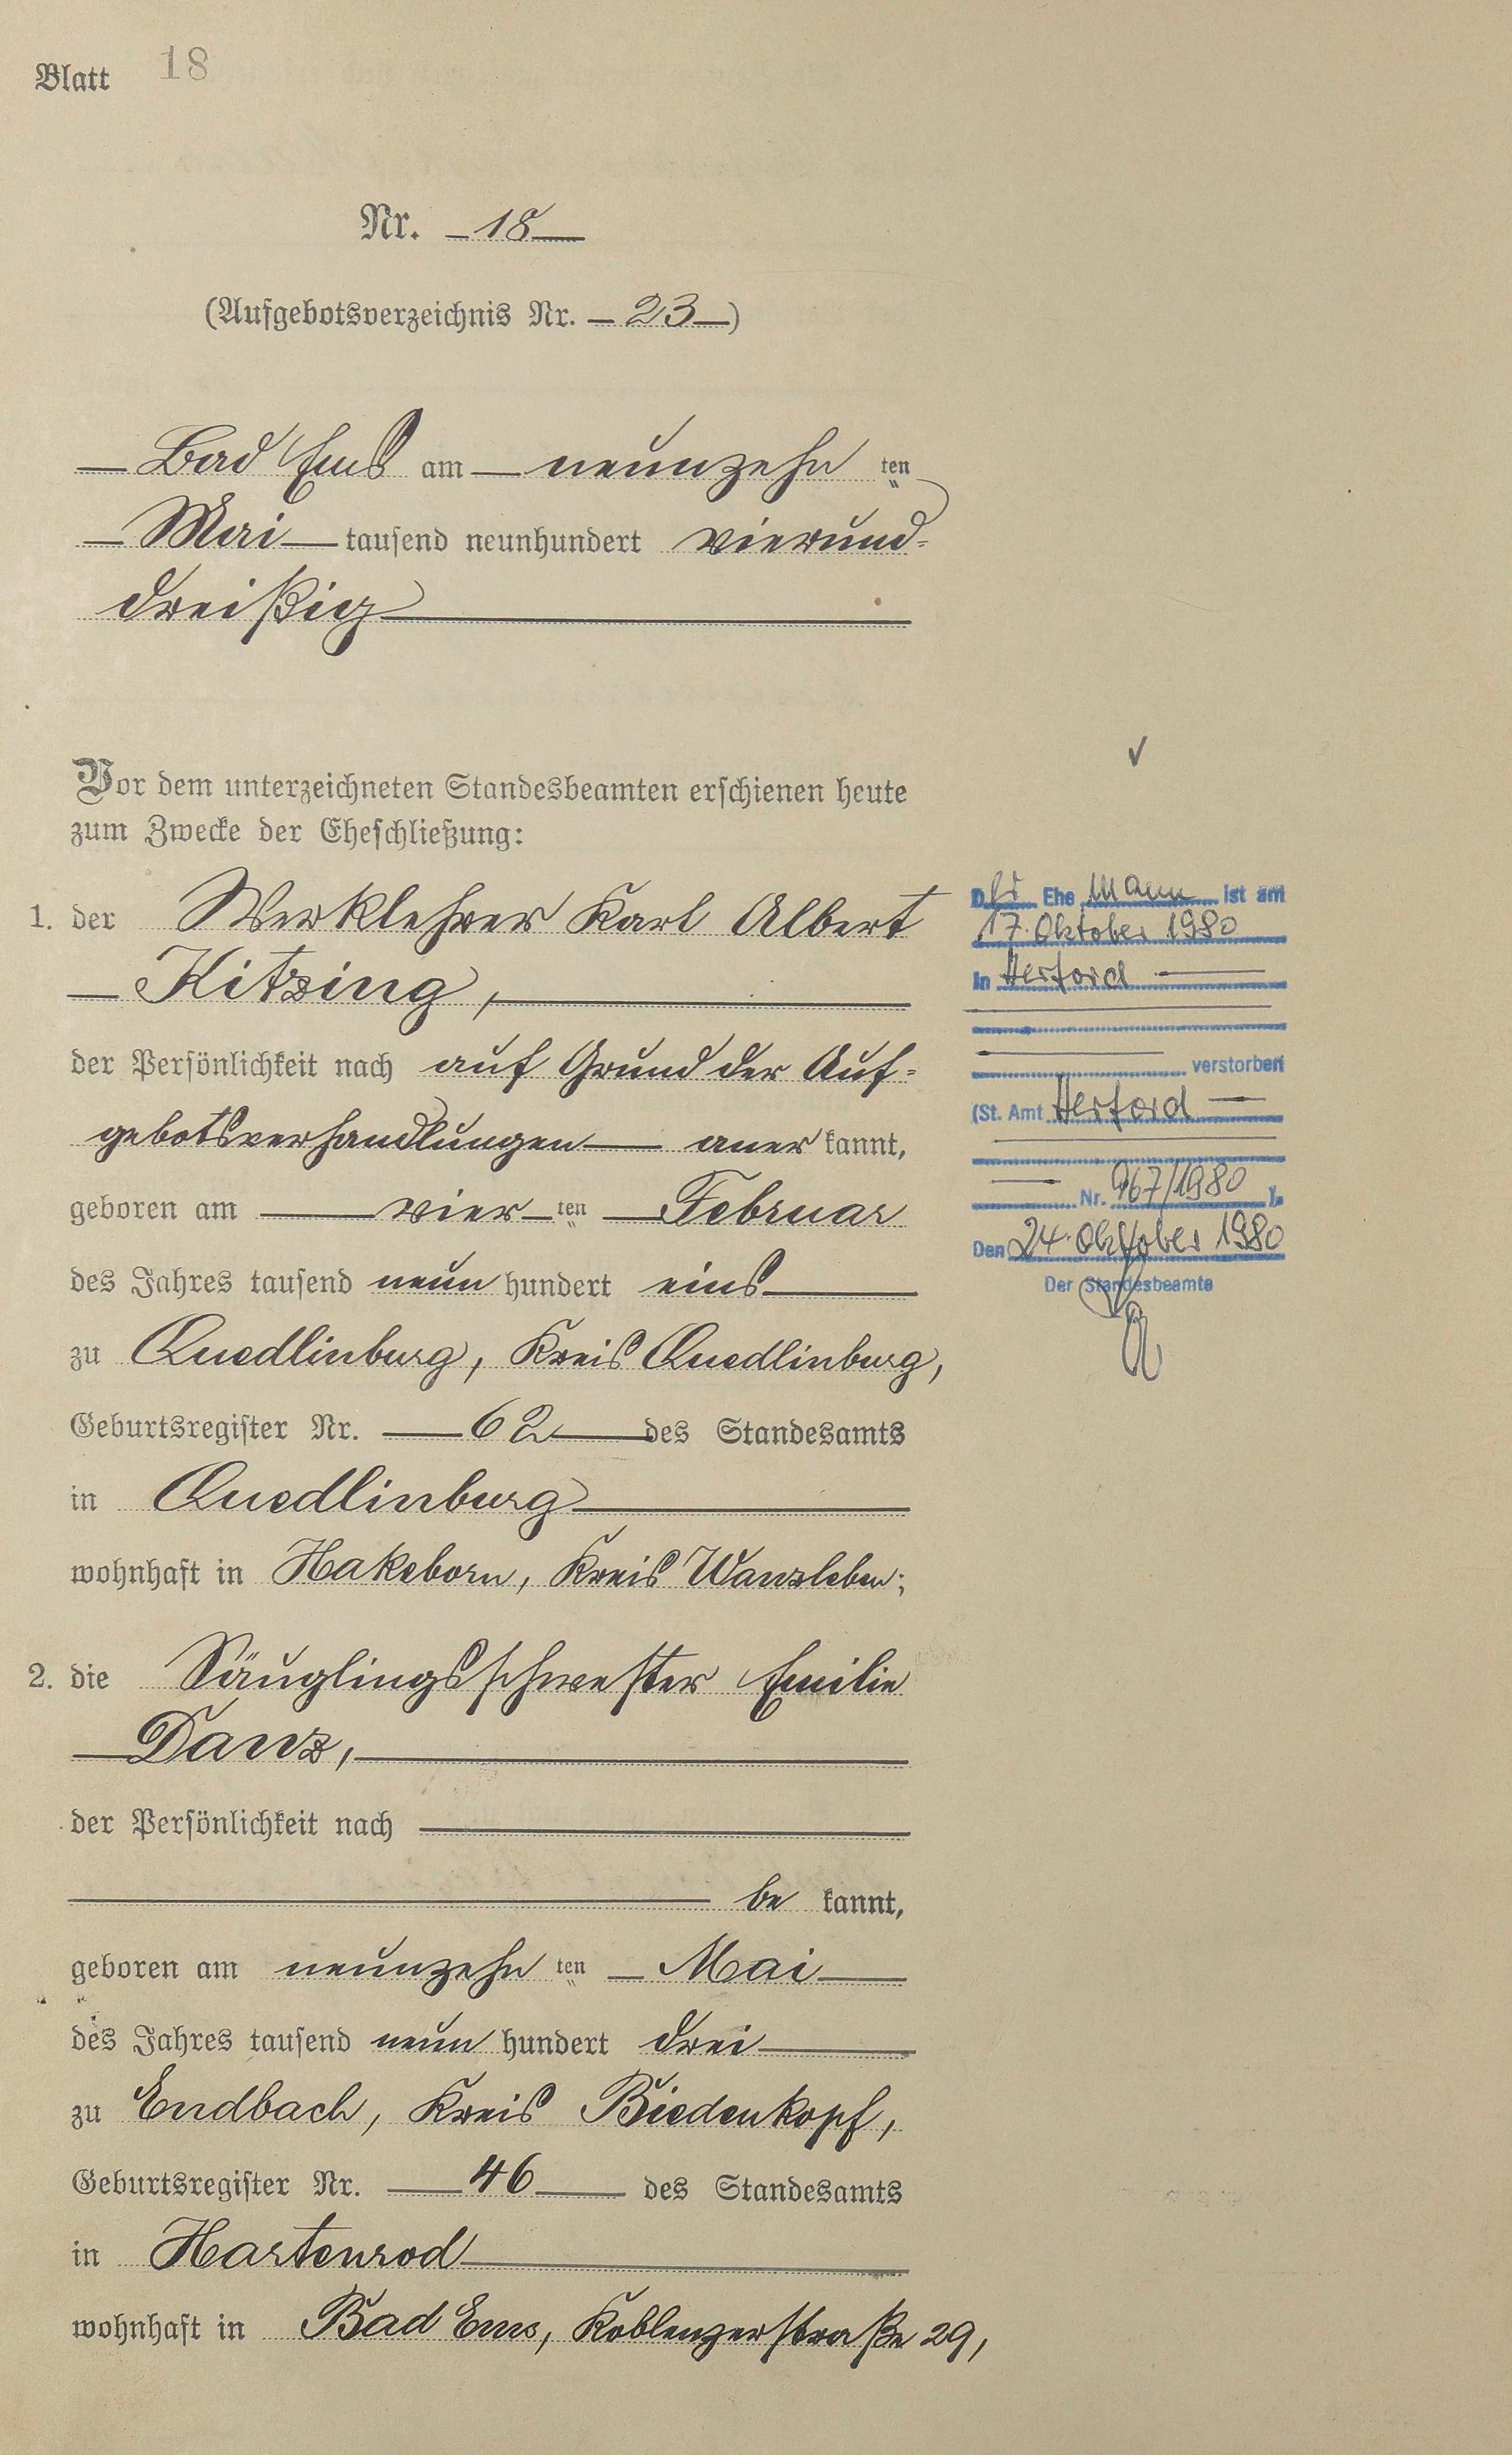 Blatt 18
Nr. 18
(Aufgebotsverzeichnis Nr. 23)
Bad Ems am neunzehn ten
Mai tausend neunhundert vierund-
dreißig
Vor dem unterzeichneten Standesbeamten erschienen heute
zum Zwecke der Eheschließung:
1. der Werklehrer Karl Albert
Kitzing,
der Persönlichkeit nach auf Grund der Auf-
gebotsverhandlungen aner kannt,
geboren am vier ten Februar
des Jahres tausend neun hundert eins
zu Quedlinburg, Kreis Quedlinburg,
Geburtsregister Nr. 62 des Standesamts
in Quedlinburg
wohnhaft in Hakeborn, Kreis Wanzleben;
2. die Säuglingsschwester Emilie
Danz,
der Persönlichkeit nach
be kannt,
geboren am neunzehn ten Mai
des Jahres tausend neun hundert drei
zu Endbach, Kreis Biedenkopf,
Geburtsregister Nr. 46 des Standesamts
in Hartenrod
wohnhaft in Bad Ems, Koblenzerstraße 29,
Der Ehe Mann ist am
17. Oktober 1980
in Herford
verstorben
(St. Amt Herford
Nr. 967/1980 ).
Den 24. Oktober 1980
Der Standesbeamte